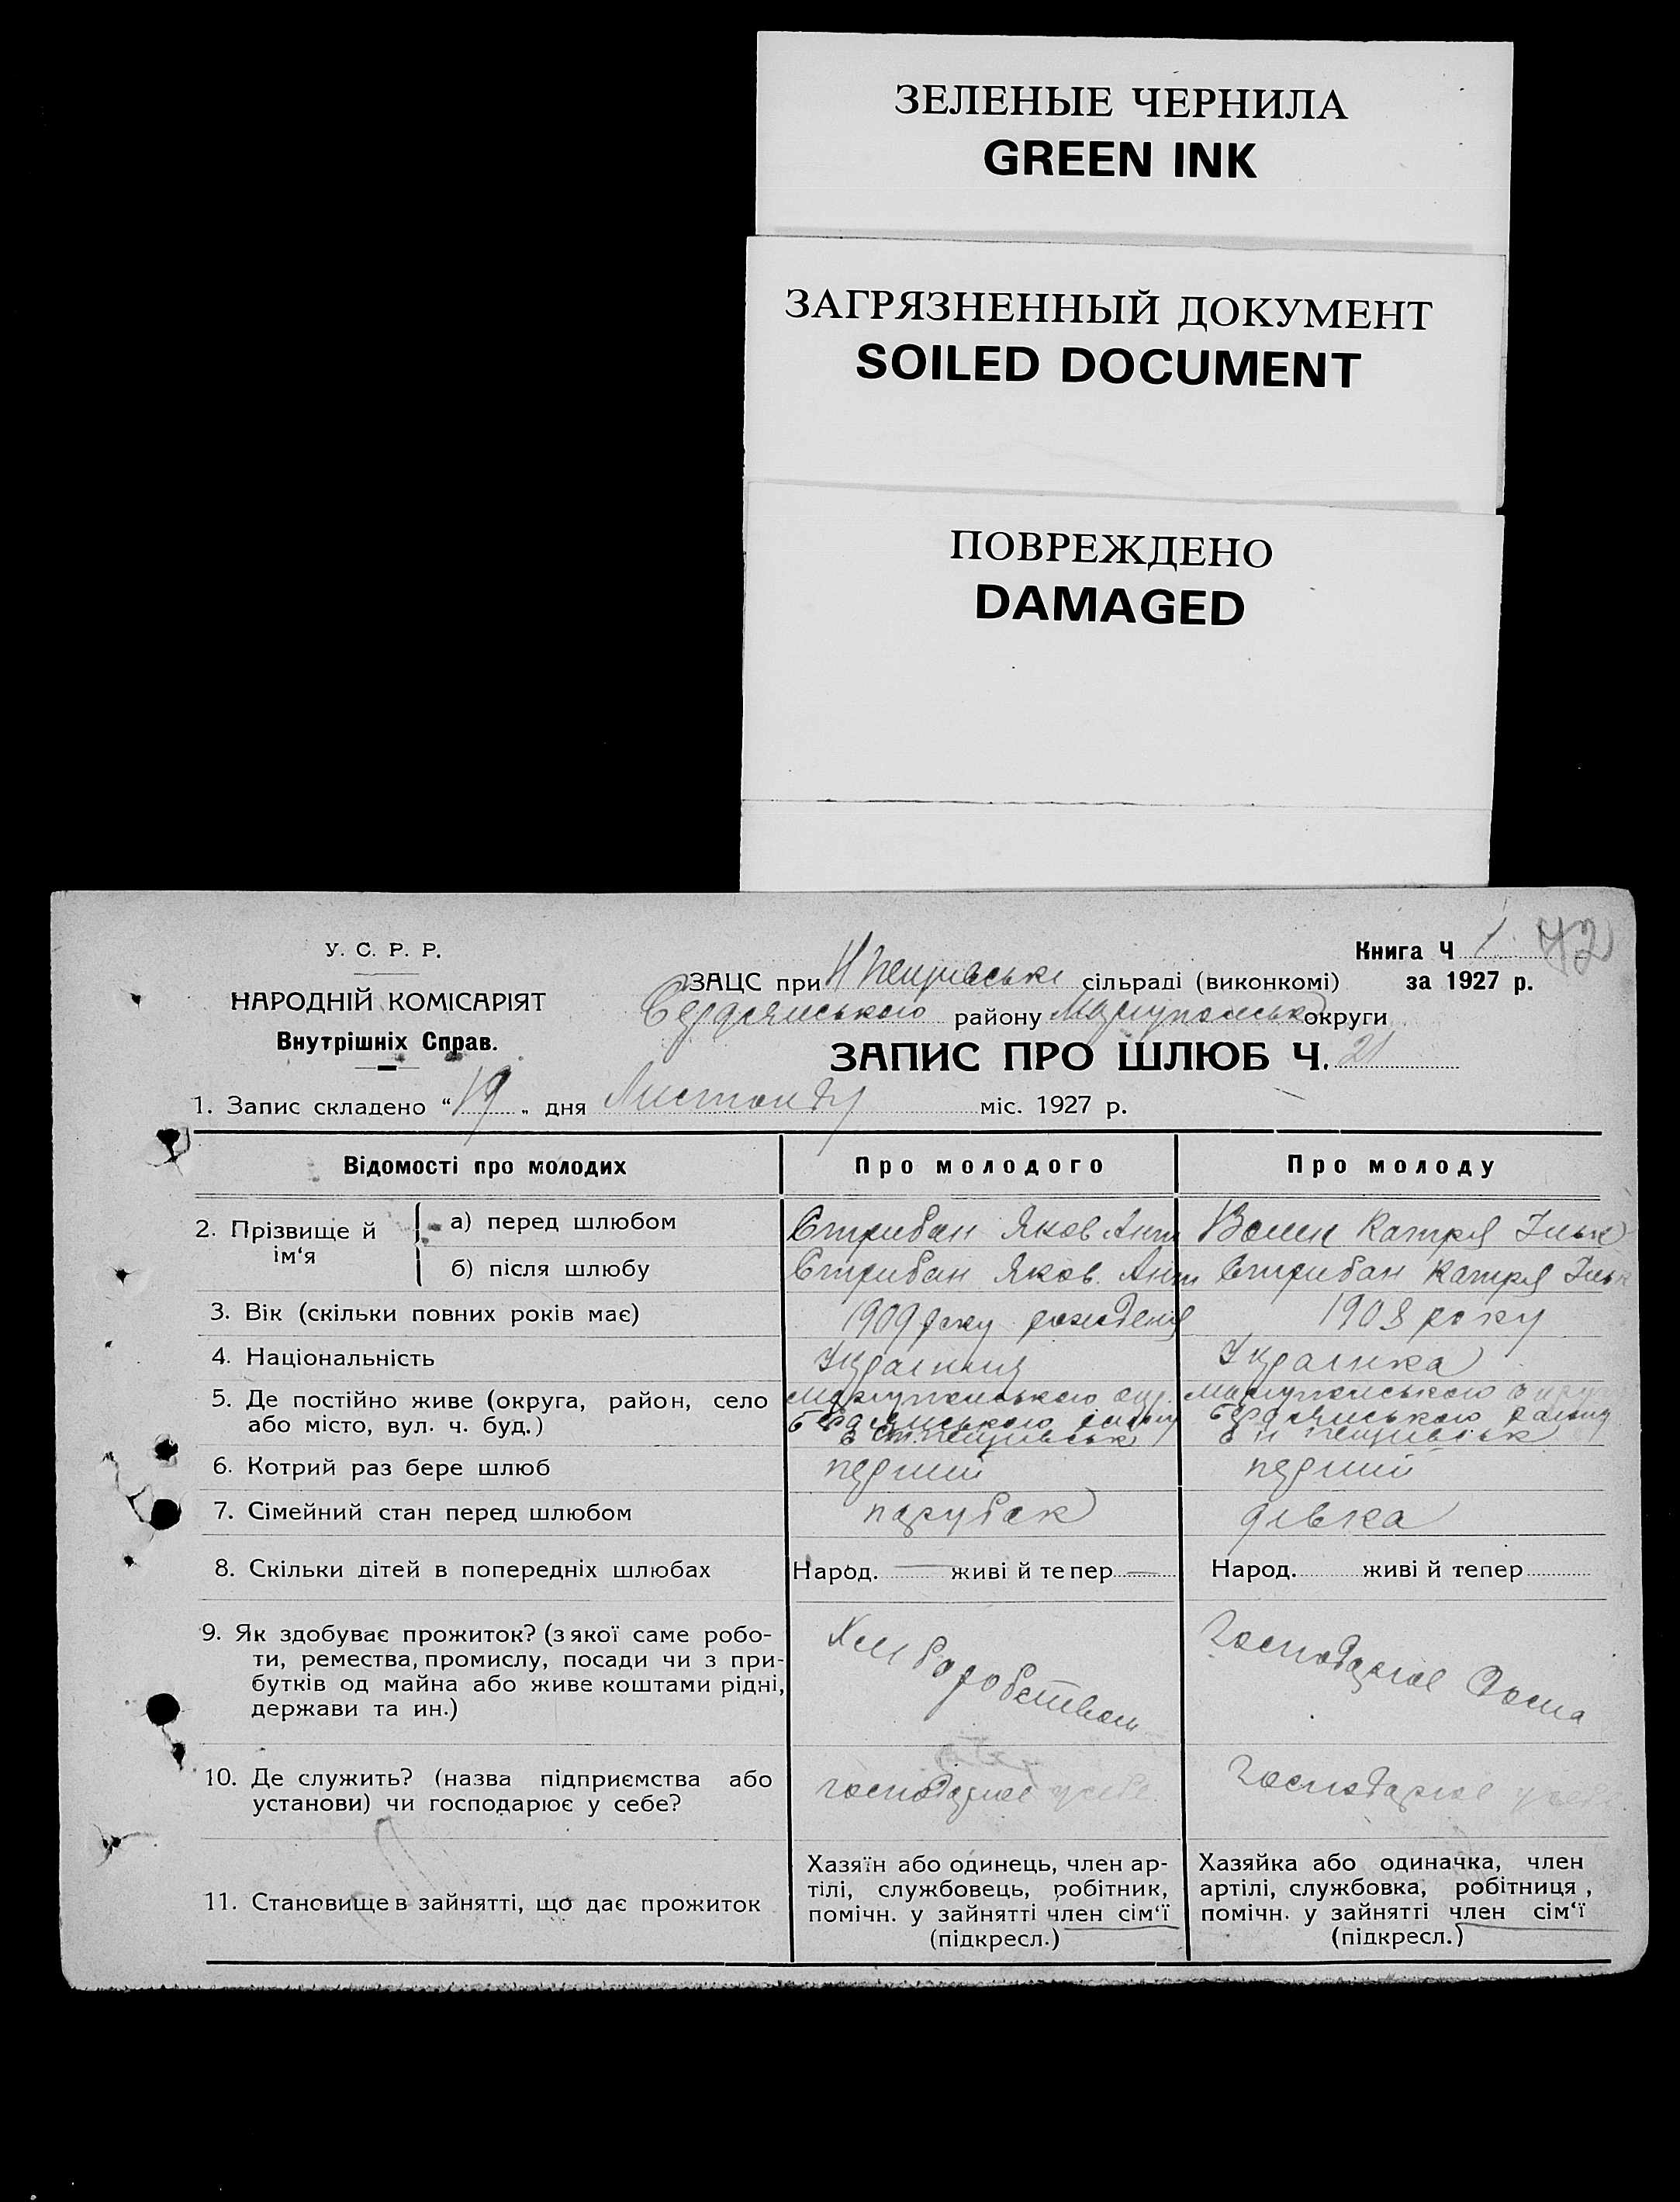 ЗЕЛЕНЫЕ ЧЕРНИЛА
GREEN INK
ЗАГРЯЗНЕННЫЙ ДОКУМЕНТ
SOILED DOCUMENT
ПОВРЕЖДЕНО
DAMAGED
У. С. Р. Р.
НАРОДНІЙ КОМІСАРІЯТ
Внутрішніх Справ.
Книга Ч 1 42
ЗАЦС при сільраді (виконкомі) за 1927 р.
Бердянського району Маріупольськ округи
ЗАПИС ПРО ШЛЮБ Ч. 21
1. Запис складено “19„ дня Листопаду міс. 1927 р.
Відомості про молодих Про молодого Про молоду
2. Прізвище й ім‘я
а) перед шлюбом Стрибан Яков Ант Катря Ільк
б) після шлюбу Стрибан Яков. Ант Стрибан Катря Ільк
3. Вік (скільки повних років має) 1909 року рождения 1908 року
4. Національність Українець Українка
5. Де постійно живе (округа, район, село Маріупольського окр. Маріупольського округ
або місто, вул. ч. буд.) Бердянського району Бердянського району
6. Котрий раз бере шлюб перший перший
7. Сімейний стан перед шлюбом парубок дівка
8. Скільки дітей в попередніх шлюбах Народ. — живі й тепер — Народ. живі й тепер
9. Як здобуває прожиток? (з якої саме робо-
ти, ремества, промислу, посади чи з при-
бутків од майна або живе коштами рідні,
держави та ин.)
Хліборобством
Господарює дома
10. Де служить? (назва підприємства або
установи) чи господарює у себе?
господарює у себе
Господарює у себе
11. Становище в зайнятті, що дає прожиток
Хазяїн або одинець, член ар-
тілі, службовець, робітник,
помічн. у зайнятті член сім‘ї
(підкресл.)
Хазяйка або одиначка, член
артілі, службовка, робітниця,
помічн. у зайнятті член сім‘ї
(підкресл.)